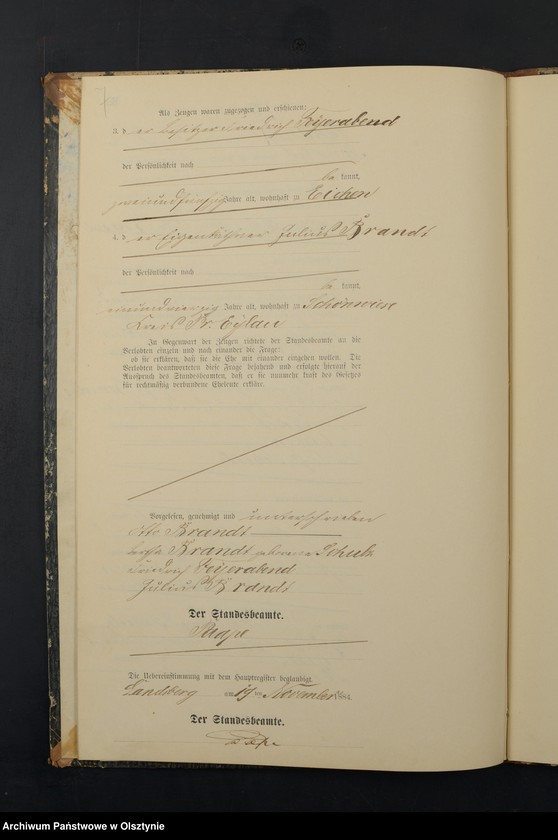 Als Zeugen waren zugezogen und erschienen:
3. der Besitzer Friedrich Feyerabend
der Persönlichkeit nach
be kannt,
zweiundfünfzig Jahre alt, wohnhaft in Eichen
4. der Eigenkäthner Julius Brandt
der Persönlichkeit nach
be kannt,
neunundvierzig Jahre alt, wohnhaft in Schönwiese
Kreis Pr. Eylau
In Gegenwart der Zeugen richtete der Standesbeamte an die
Verlobten einzeln und nach einander die Frage:
ob sie erklären, daß sie die Ehe mit einander eingehen wollen. Die
Verlobten beantworteten diese Frage bejahend und erfolgte hierauf der
Ausspruch des Standesbeamten, daß er sie nunmehr kraft des Gesetzes
für rechtmäßig verbundene Eheleute erkläre.
Vorgelesen, genehmigt und unterschrieben
Otto Brandt
Brandt geborene Schulz
Friedrich Feyerabend
Julius Brandt
Der Standesbeamte.
Die Uebereinstimmung mit dem Hauptregister beglaubigt.
Landsberg am 19 ten November
Der Standesbeamte.
Archiwum Państwowe w Olsztynie